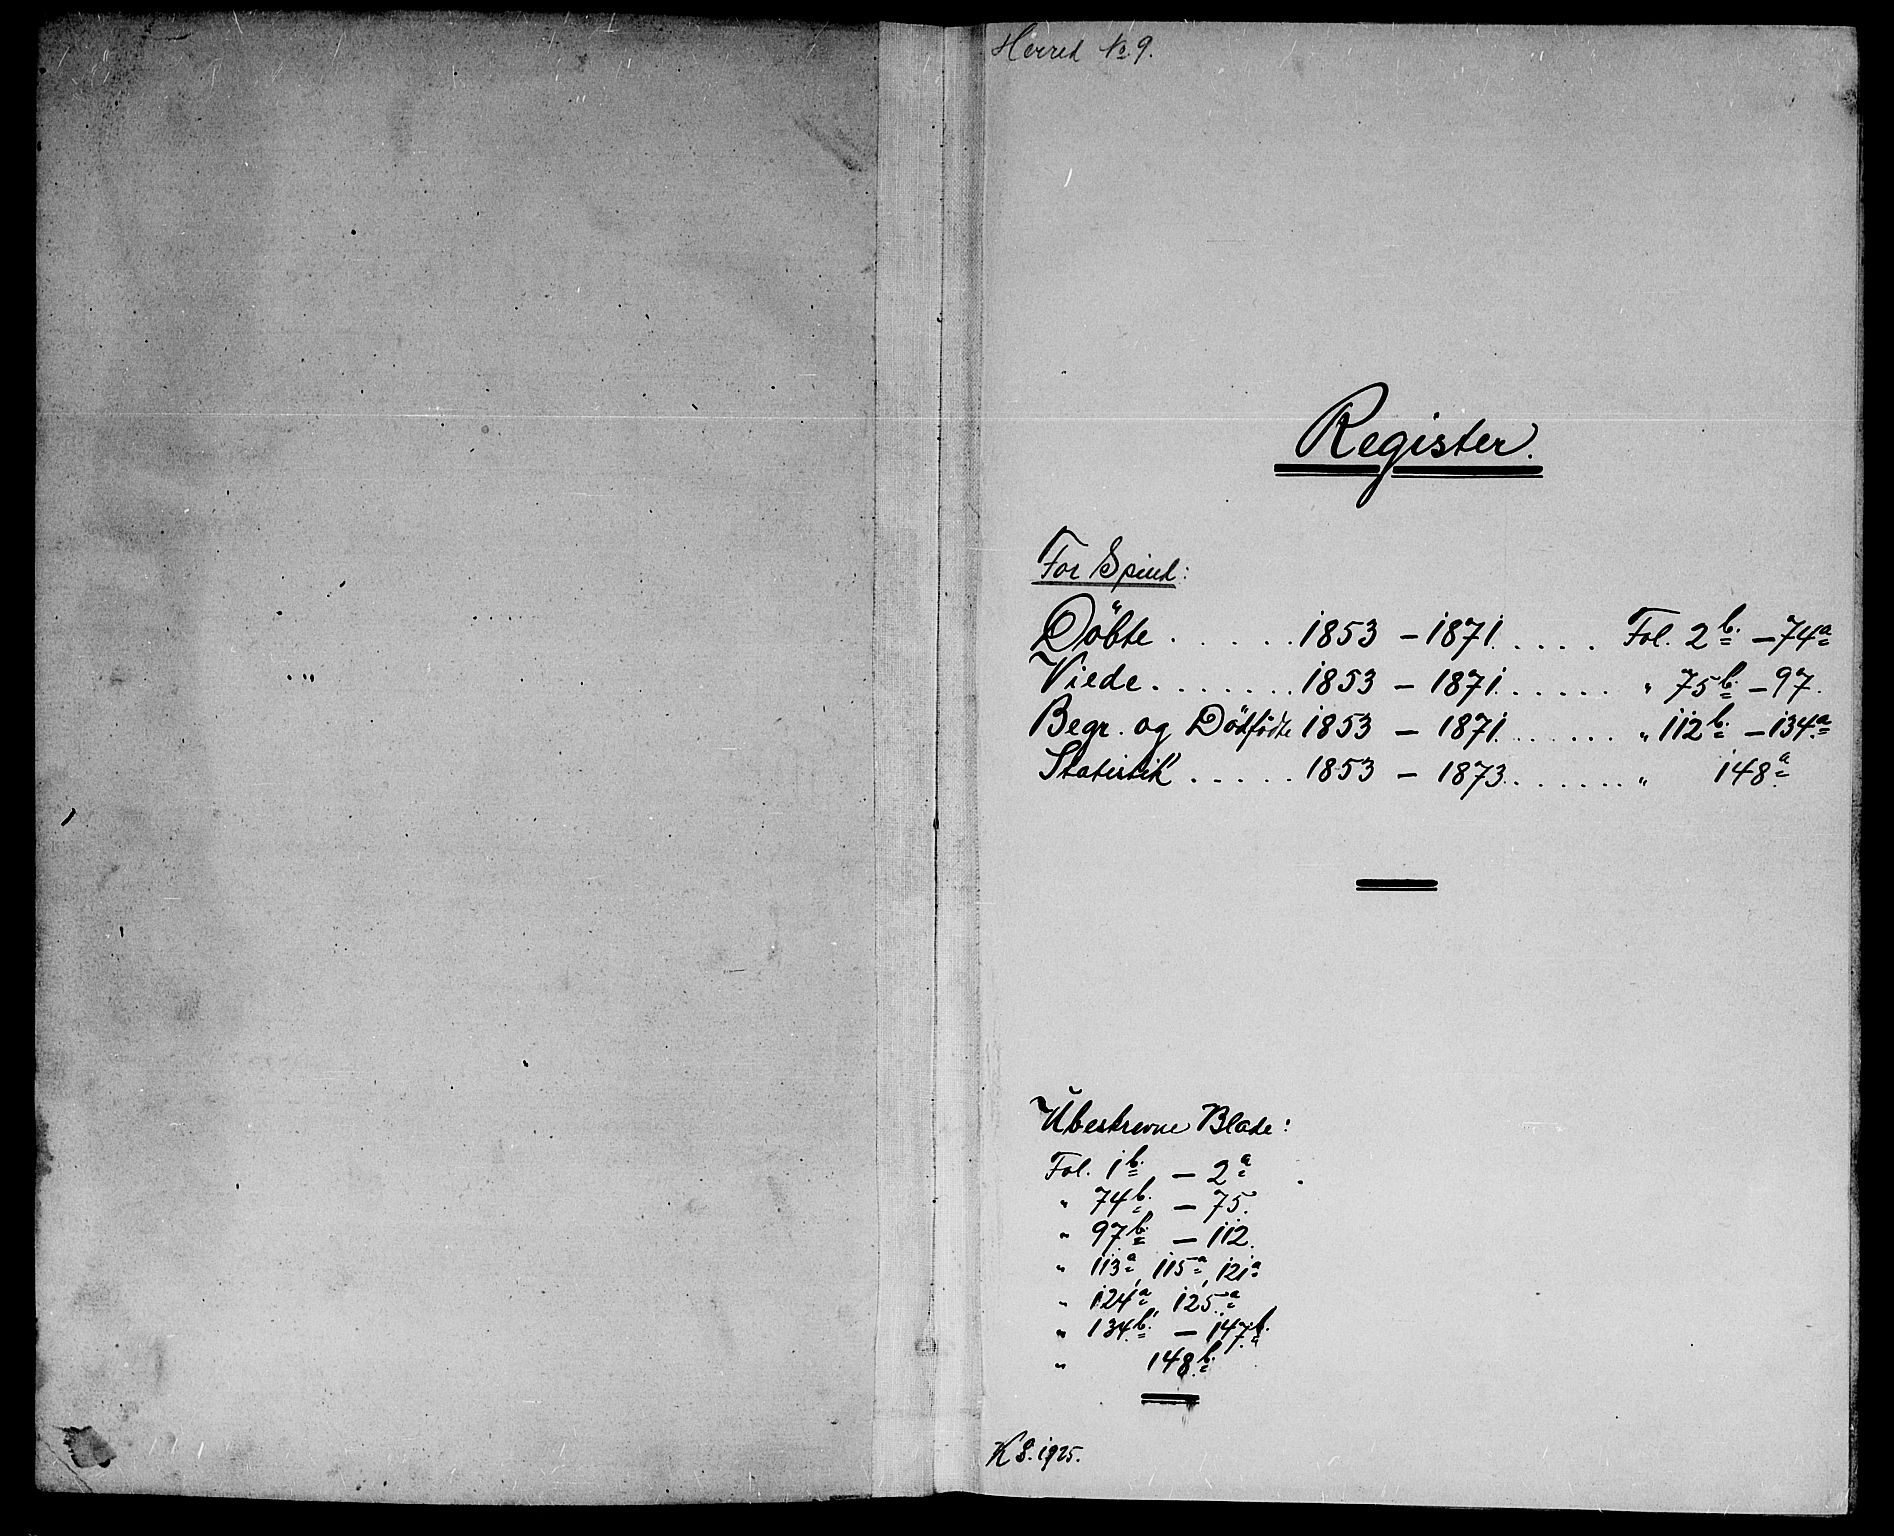 Herred No. 9.
Register.
For Spind:
Döbte . . . . . . 1853 – 1871. . . . . Fol. 2b. – 74a
Viede. . . . . . . 1853 – 1871. . . . . . " 75b. – 97.
Begr. og Dödfödte 1853 – 1871. . . . . . . " 112b. – 134a
Statistik . . . . . 1853 – 1873. . . . . . . " 148a
Ubeskrevne Blade:
Fol. 1b. – 2a
" 74b. – 75.
" 97b. – 112.
" 113a, 115a, 121a
" 124a, 125a
" 134b. – 147b.
" 148b.
K S. 1925.